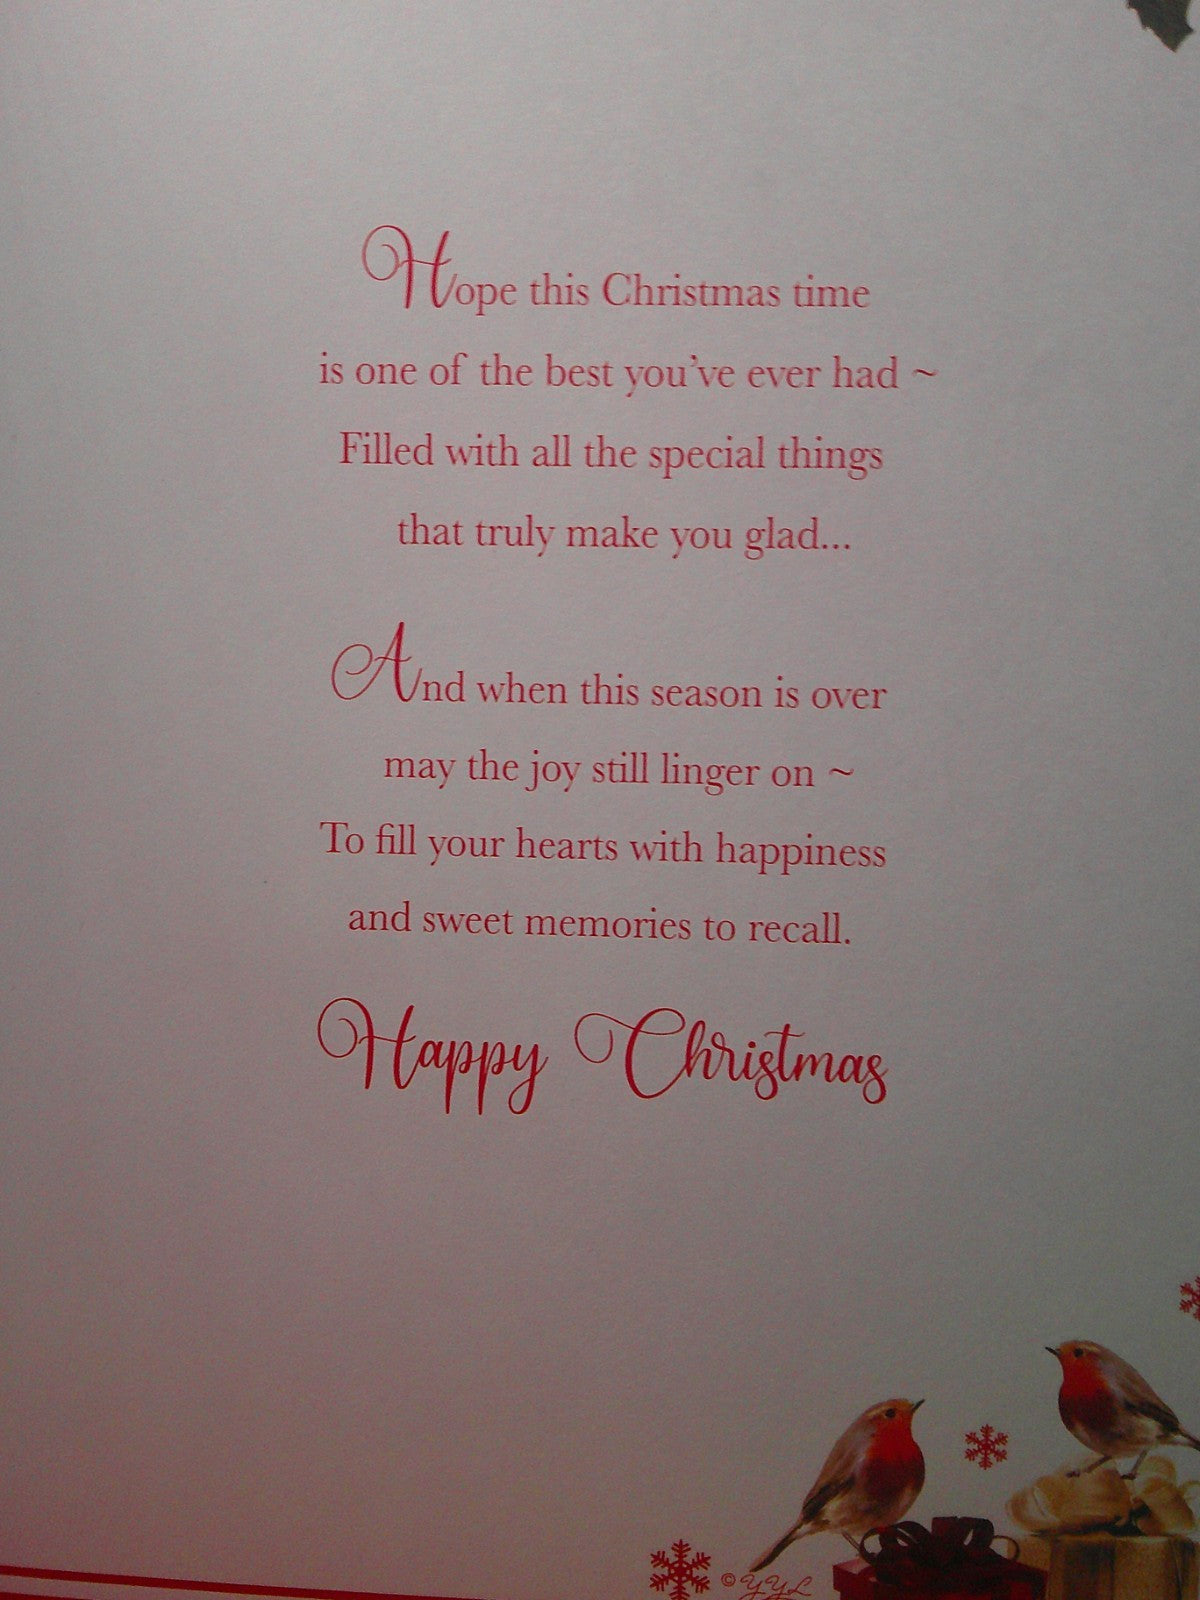 Hope this Christmas time
is one of the best you've ever had ~
Filled with all the special things
that truly make you glad...
And when this season is over
may the joy still linger on ~
To fill your hearts with happiness
and sweet memories to recall.
Happy Christmas
© YYL